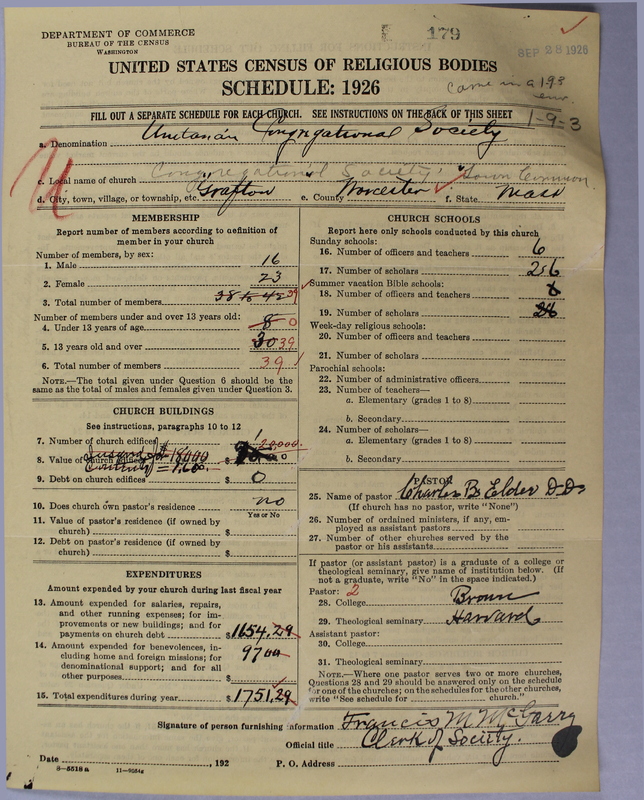 DEPARTMENT OF COMMERCE
BUREAU OF THE CENSUS
WASHINGTON
179
SEP 28 1926
UNITED STATES CENSUS OF RELIGIOUS BODIES
SCHEDULE: 1926
Came in a 193
env.
FILL OUT A SEPARATE SCHEDULE FOR EACH CHURCH. SEE INSTRUCTIONS ON THE BACK OF THIS SHEET
1-9-3
a. Denomination Unitarian Congregational Society
c. Local name of church Congregational Society, Town Common
d. City, town, village, or township, etc. Grafton e. County Worcester f. State Mass
MEMBERSHIP
Report number of members according to definition of member in your church
Number of members, by sex:
1. Male 16
2. Female 23
3. Total number of members 38 to 42 39
Number of members under and over 13 years old:
4. Under 13 years of age 8 0
5. 13 years old and over 30 39
6. Total number of members 39
NOTE.—The total given under Question 6 should be the same as the total of males and females given under Question 3.
CHURCH BUILDINGS
See instructions, paragraphs 10 to 12
7. Number of church edifices 1
20,000.
8. Value of church edifices $
Insured for $18000
9. Debt on church edifices $ 0
10. Does church own pastor's residence no
Yes or No
11. Value of pastor's residence (if owned by church) $
12. Debt on pastor's residence (if owned by church) $
EXPENDITURES
Amount expended by your church during last fiscal year
13. Amount expended for salaries, repairs, and other running expenses; for improvements or new buildings; and for payments on church debt $ 1654.29
14. Amount expended for benevolences, including home and foreign missions; for denominational support; and for all other purposes $ 97 00
15. Total expenditures during year $ 1751.29
CHURCH SCHOOLS
Report here only schools conducted by this church
Sunday schools:
16. Number of officers and teachers 6
17. Number of scholars 26
Summer vacation Bible schools:
18. Number of officers and teachers
19. Number of scholars
Week-day religious schools:
20. Number of officers and teachers
21. Number of scholars
Parochial schools:
22. Number of administrative officers
23. Number of teachers—
a. Elementary (grades 1 to 8)
b. Secondary
24. Number of scholars—
a. Elementary (grades 1 to 8)
b. Secondary
PASTOR
25. Name of pastor Charles B. Elder D.D.
(If church has no pastor, write "None")
26. Number of ordained ministers, if any, employed as assistant pastors
27. Number of other churches served by the pastor or his assistants
If pastor (or assistant pastor) is a graduate of a college or theological seminary, give name of institution below. (If not a graduate, write "No" in the space indicated.)
Pastor: 2
28. College Brown
29. Theological seminary Harvard
Assistant pastor:
30. College
31. Theological seminary
NOTE.—Where one pastor serves two or more churches, Questions 28 and 29 should be answered only on the schedule for one of the churches; on the schedules for the other churches, write "See schedule for church."
Signature of person furnishing information Francis M. McGarry
Official title Clerk of Society.
Date , 192 P. O. Address
8-5518a 11-9084g